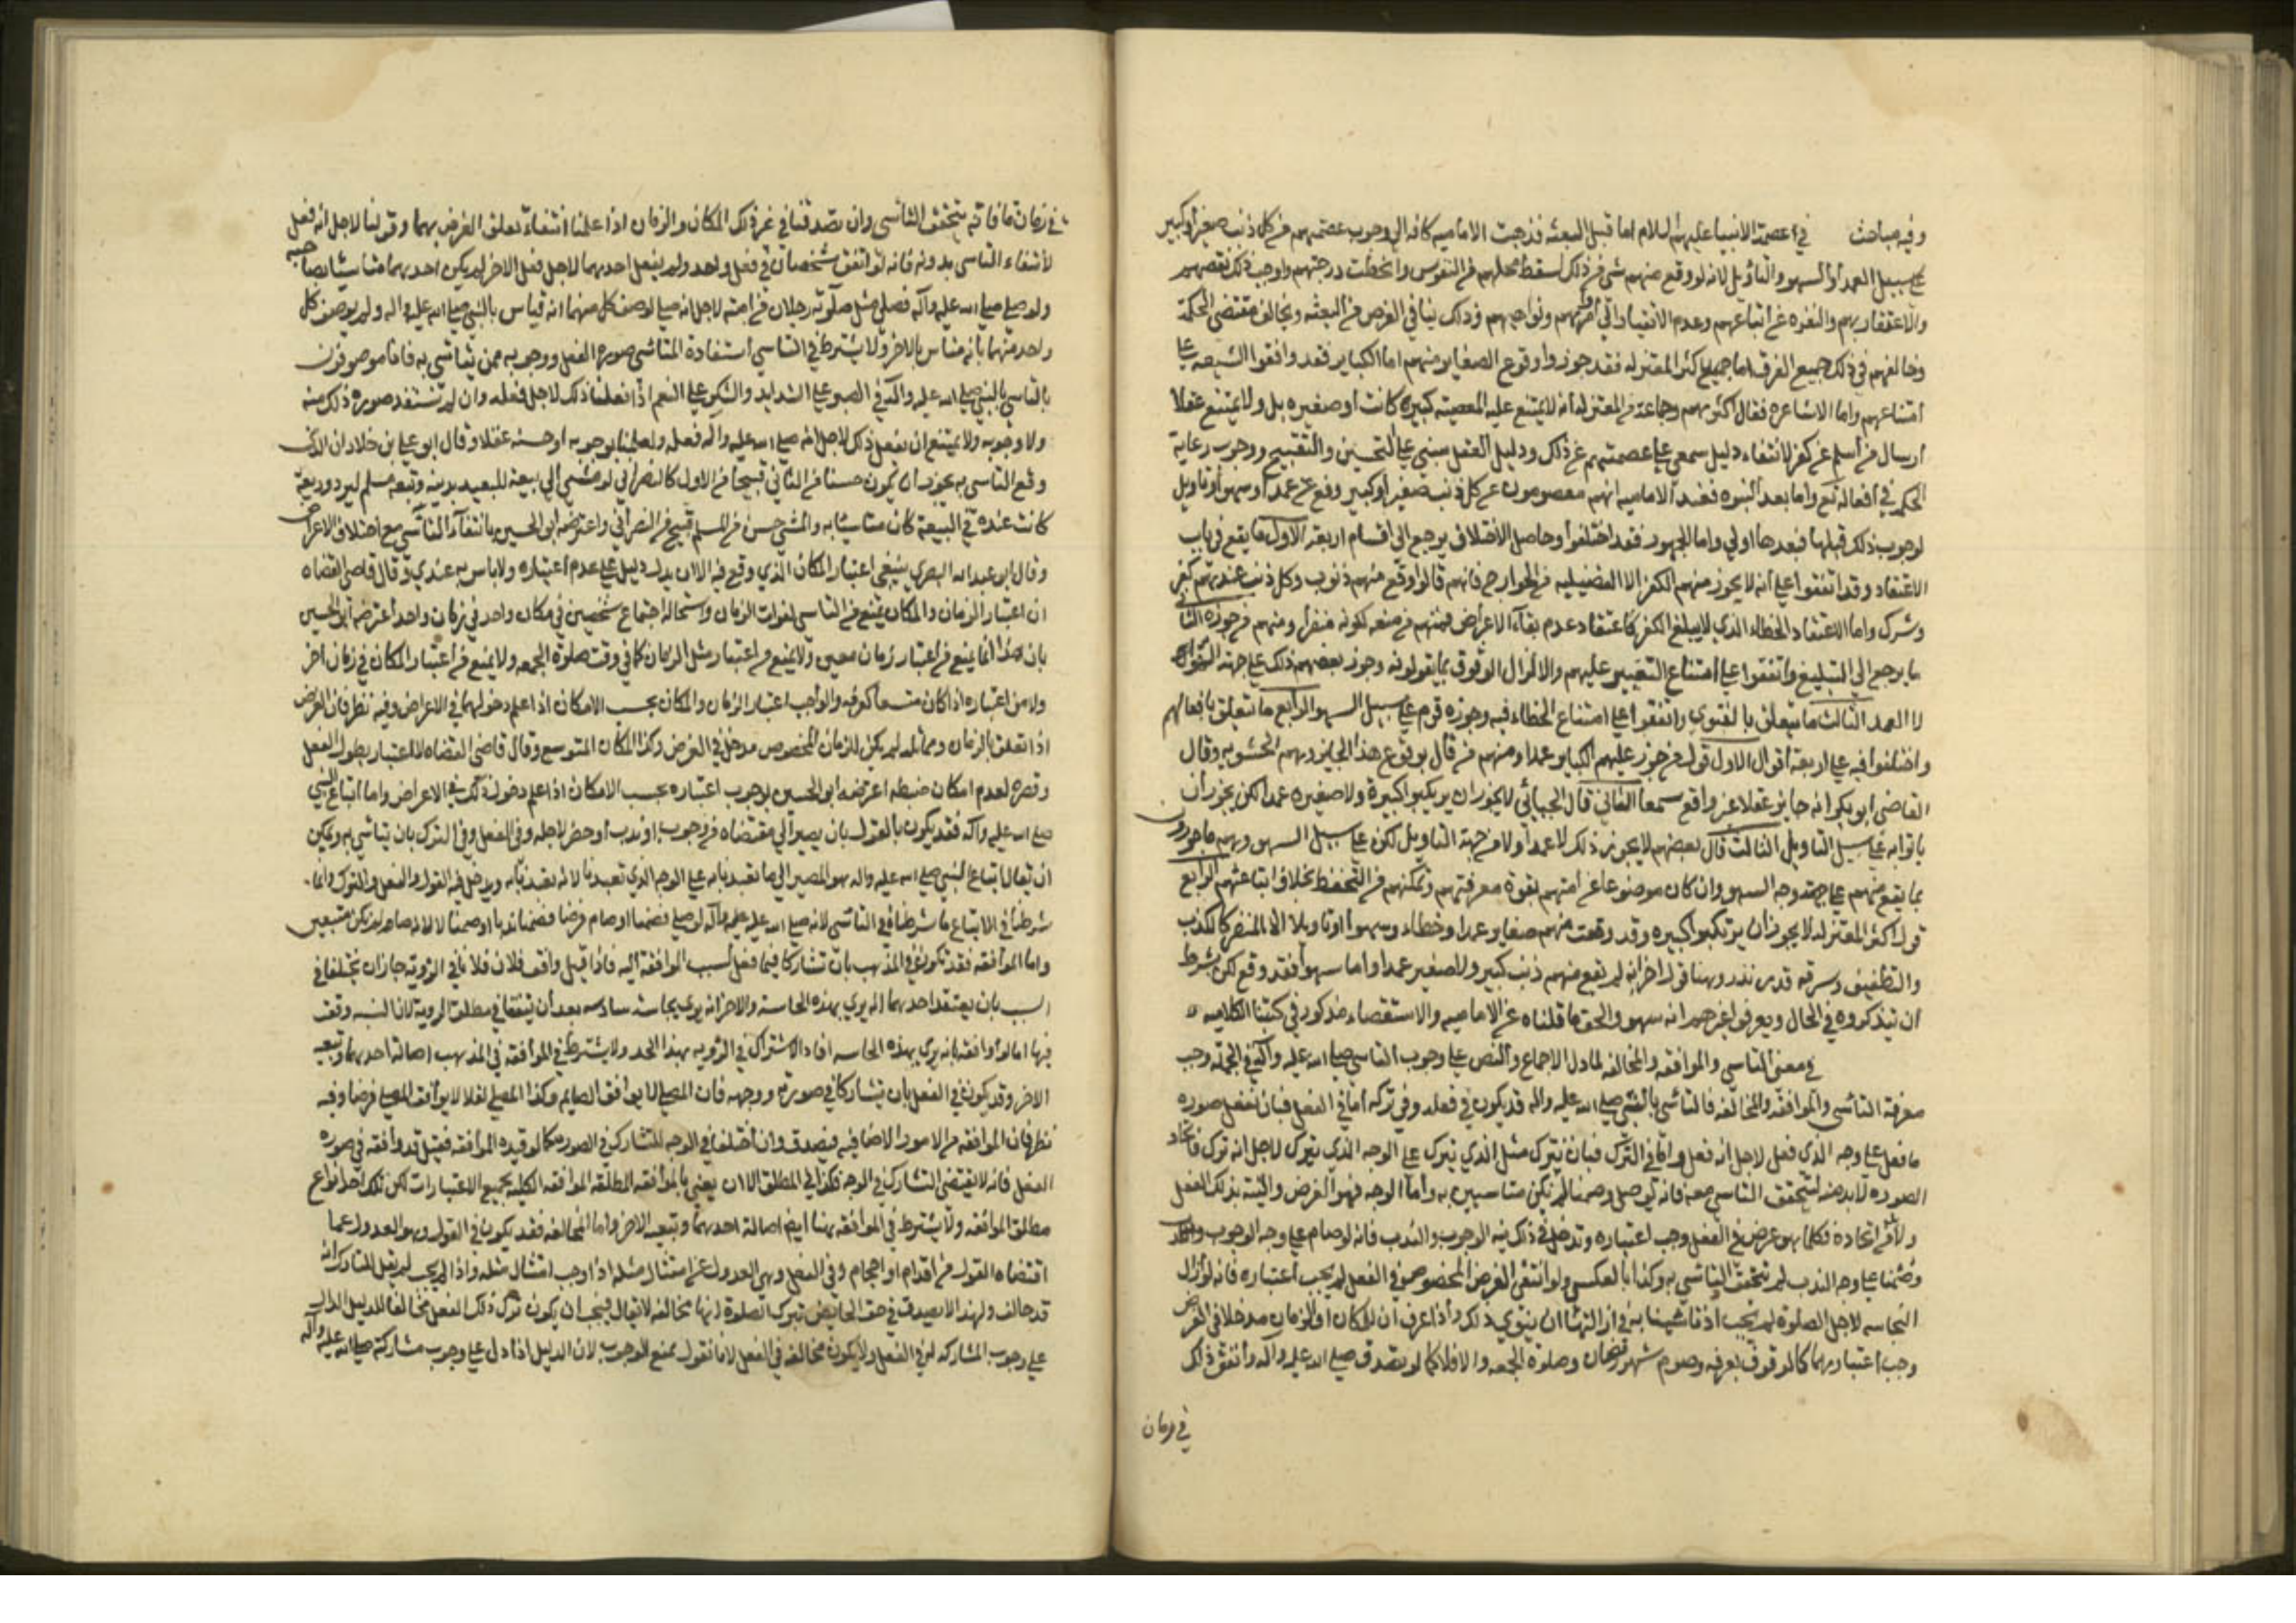 وفيه مباحث في عصمة الانبياء عليهم السلام اما قبل البعثه فذهبت الاماميه كافه الى وجوب عصمتهم من كل ذنب صغير او كبير
على سبيل العمد أو السهو والتأويل لانه لو وقع منهم شي من ذلك لسقط محلهم من النفوس وانحطت درجتهم واوجب ذلك نقصهم
والاعتقار بهم والنفره عن اتباعهم وعدم الانقياد الى أمرهم ونواهيهم وذلك ينافي الغرض من البعثه ويخالف مقتضى الحكمة
وخالفهم في ذلك جميع الفرق اما اكثر المعتزله فقد جوزوا وقوع الصغاير منهم اما الكباير فقد وافقوا الشيعه على
امتناعهم واما الاشاعره فقال اكثرهم وجماعة من المعتزله أنه لا يمتنع عليه المعصيته كبيرة كانت أو صغيره بل ولا يمتنع عقلا
ارسال من أسلم عن كفر لانتفاء دليل سمعي على عصمتهم عن ذلك ودليل العقل مبني على التحسين والتقبيح ووجوب رعاية
الحكم في أفعاله تع واما بعد النبوه فعند الاماميه انهم معصومون عن كل ذنب صغير او كبير وقع عن عمد أو سهو أو تأويل
لوجوب ذلك قبلها فبعدها اولى واما الجمهور فقد اختلفوا وحاصل الاختلاف يرجع الى اقسام اربعة الاول ما يقع في باب
الاعتقاد وقد اتفقوا على أنه لا يجوز منهم الكفر الا الفضيليه من الخوارج فانهم قالوا وقع منهم ذنوب وكل ذنب عندهم كفر
وشرك واما الاعتقاد الخطاء الذي لا يبلغ الكفر كاعتقاد عدم بقاء الاعراض فمنهم من منعه لكونه منفرا ومنهم من جوزه الثاني
ما يرجع الى التبليغ واتفقوا على امتناع التغيير عليهم والا لزال الوثوق بما يقولونه وجوز بعضهم ذلك على جهة السهو
لا العمد الثالث ما يتعلق بالفتوى واتفقوا على امتناع الخطاء فيه وجوزه قوم على سبيل السهو الرابع ما يتعلق بافعالهم
واختلفوا فيه على اربعة أقوال الاول قول من جوز عليهم الكباير عمدا ومنهم من قال بوقوع هذا الجايز وهم الحشويه وقال
القاضي ابو بكر انه جايز عقلا غير واقع سمعا الثاني قال الجبائي لا يجوز ان يرتكبوا كبيرة ولا صغيره عمدا لكن يجوز أن
ياتوا به على سبيل التاويل الثالث قال بعضهم لا يجوز ذلك لا عمدا ولا من جهة التاويل لكن على سبيل السهو وهم ماخوذون
بما يقع منهم على جهة وجه السهو وان كان موضوعا عن امتهم لقوة معرفتهم وتمكنهم من التحفظ بخلاف اتباعهم الرابع
قول أكثر المعتزله لا يجوز أن يرتكبوا كبيره وقد وقعت منهم صغاير عمدا وخطاء وسهوا او تاويلا الا المنفر كالكذب
والتطفيف وسرقه قدر نذر وهنا قول اخر انه لم يقع منهم ذنب كبير ولا صغير عمدا واما سهوا فقد وقع لكن بشرط
أن يتذكروه في الحال ويعرفوا غيرهم انه سهو والحق ما قلناه عن الاماميه والاستقصاء مذكور في كتبنا الكلاميه
في معنى التاسي والموافقه والمخالفه لما دل الاجماع والنص على وجوب التاسي صلى الله عليه وآله في الجملة وجب
معرفة التأسي والموافقه والمخالفه فالتاسي بالنبي صلى الله عليه واله قد يكون في فعله وفي تركه أما في الفعل فبان نفعل صوره
ما فعل على وجه الذي فعل لاجل انه فعل واما في الترك فبان نترك مثل الذي ترك على الوجه الذي ترك لاجل انه ترك فاتحاد
الصوره لا بد منه لتحقق التاسي معه فانه لو صلى وصمنا لم نكن متاسيين به واما الوجه فهو الغرض والنيه بذلك الفعل
ولا من اتحاده فكلما هو غرض في الفعل وجب اعتباره وتدخل في ذلك نيه الوجوب والندب فانه لو صام على وجه الوجوب
وصمنا على وجه الندب لم يتحقق التاسي به وكذا بالعكس ولو انتفى الغرض المخصوص في الفعل لم يجب اعتباره فانه لو أزال
النجاسه لاجل الصلوة لم يجب اذا تاسينا به في ازالتها ان ننوي ذلك واذا عرف ان للمكان او الزمان مدخلا في الغرض
وجب اعتبارهما كالوقوف بعرفه وصوم شهر رمضان وصلوة الجمعه والا فلا كما لو تصدق صلى الله عليه وآله واتفق ذلك
في زمان
في زمان ما فانه يتحقق التأسي وان تصدقنا في غير ذلك المكان والزمان اذا علمنا انتفاء تعلق الغرض بهما وقولنا لاجل انه فعل
لانتفاء التاسي بدونه فانه لو اتفق شخصان في فعل واحد ولم يفعل احدهما لاجل فعل الاخر لم يكن احدهما متاسيا بصاحبه
ولو صلى صلى الله عليه وآله فصلى مثل صلوته رجلان من امته لاجل انه صلى لوصف كل منهما انه متاس بالنبي صلى الله عليه واله ولم يوصف كل
واحد منهما بانه متاس بالاخر ولا يشترط في التاسي استفادة المتاسى صوره الفعل ووجوبه ممن يتاسى به فانا موصوفون
بالتاسي بالنبي صلى الله عليه وآله في الصبر على الشدايد والشكر على النعم اذا فعلنا ذلك لاجل فعله وان لم نستفد صوره ذلك منه
ولا وجوبه ولا يمتنع ان نفعل ذلك لاجل انه صلى الله عليه وآله فعله ولعلمنا بوجوبه او حسنه عقلا وقال ابو علي بن خلاد ان الذي
وقع التاسي به يجوز ان يكون حسنا من الثاني قبيحا من الاول كالنصراني لو مشى الى بيعة للتعبد بدينه وتبعه مسلم ليرد وديعة
كانت عنده في البيعة كان متاسيا به والمشي حسن من المسلم قبيح من النصراني واعترضه ابو الحسين بانتفاء التأسي مع اختلاف الاغراض
وقال ابو عبد الله البصري ينبغي اعتبار المكان الذي وقع فيه الا ان يدل دليل على عدم اعتباره ولا باس به عندي وقال قاضي القضاه
ان اعتبار الزمان والمكان يمنع من التاسي لفوات الزمان واستحالة اجتماع شخصين في مكان واحد في زمان واحد اعترضه ابو الحسين
بان هذا انما يمنع من اعتبار زمان معين ولا يمنع من اعتبار مثل الزمان كما في وقت صلوة الجمعه ولا يمنع من اعتبار المكان في زمان اخر
ولا من اعتباره اذا كان متسعا كعرفه والواجب اعتبار الزمان والمكان بحسب الامكان اذا علم دخولهما في الاغراض وفيه نظر فان الغرض
اذا تعلق بالزمان ومماثله لم يكن للزمان المخصوص مدخل في الغرض وكذا المكان المتوسع وقال قاضي القضاه لا اعتبار بطول الفعل
وقصره لعدم امكان ضبطه اعترضه ابو الحسين بوجوب اعتباره بحسب الامكان اذا علم دخول ذلك في الاغراض واما اتباع النبي
صلى الله عليه وآله فقد يكون بالقول بان يصير الى مقتضاه من وجوب او ندب أو حظر لاجله وفي الفعل وفي الترك بان يتاسى به ويمكن
ان يقال اتباع النبي صلى الله عليه واله هو المصير الى ما تعبدنا به على الوجه الذي تعبدنا لانه تعبدنا به ويدخل فيه القول والفعل والترك وانما
شرطنا في الاتباع ما شرطناه في التاسي لانه صلى الله عليه وآله لو صلى فصمنا او صام فرضا فصمنا ندبا او صمنا لا لانه صام لم نكن متبعين
واما الموافقه فقد تكون في المذهب بان تشاركا فيما فعل لسبب الموافقة اليه فاذا قيل وافق فلان فلانا في الرؤية جاز ان يختلفا في
السبب بان يعتقد احدهما انه يري بهذه الحاسة والاخر انه يري بحاسة سادسه بعد أن يتفقا في مطلق الروية لان النسبه وقعت
فيها اما لو وافقه بانه يري بهذه الحاسه افاد الاشتراك في الرؤيه بهذا الحد ولا يشترط في الموافقه في المذهب اصالة احدهما وتبعيه
الاخر وقد يكون في الفعل بان يتشاركا في صورته ووجهه فان المصلي لا يوافق الصايم وكذا المصلي نفلا لا يوافق المصلي فرضا وفيه
نظر فان الموافقه من الامور الاضافيه فيصدق وان اختلفا في الوجه للتشارك في الصوره كما لو قيده الموافقه فقيل قد وافقه في صوره
الفعل فانه لا يقتضي التشارك في الوجه فكذا في المطلق الا ان يعني بالموافقه المطلقه الموافقه الكليه بجميع الاعتبارات لكن ذلك احد انواع
مطلق الموافقه ولا يشترط في الموافقه هنا أيضا اصالة احدهما وتبعيه الاخر واما المخالفه فقد يكون في القول وهو العدول عما
اقتضاه القول من اقدام او احجام وفي الفعل وهي العدول عن امتثال مثله اذا وجب امتثال مثله واذا لم يجب لم يقل للتارك انه
قد خالف ولهذا لا يصدق في حق الحايض بترك الصلوة انها مخالفه لا يقال فيجب ان يكون ترك ذلك الفعل مخالفا للدليل الدال
على وجوب المشاركه في الفعل ولا يكون مخالفه في الفعل لانا نقول يمنع الوجوب لان الدليل اذا دل على وجوب مشاركته صلى الله عليه وآله